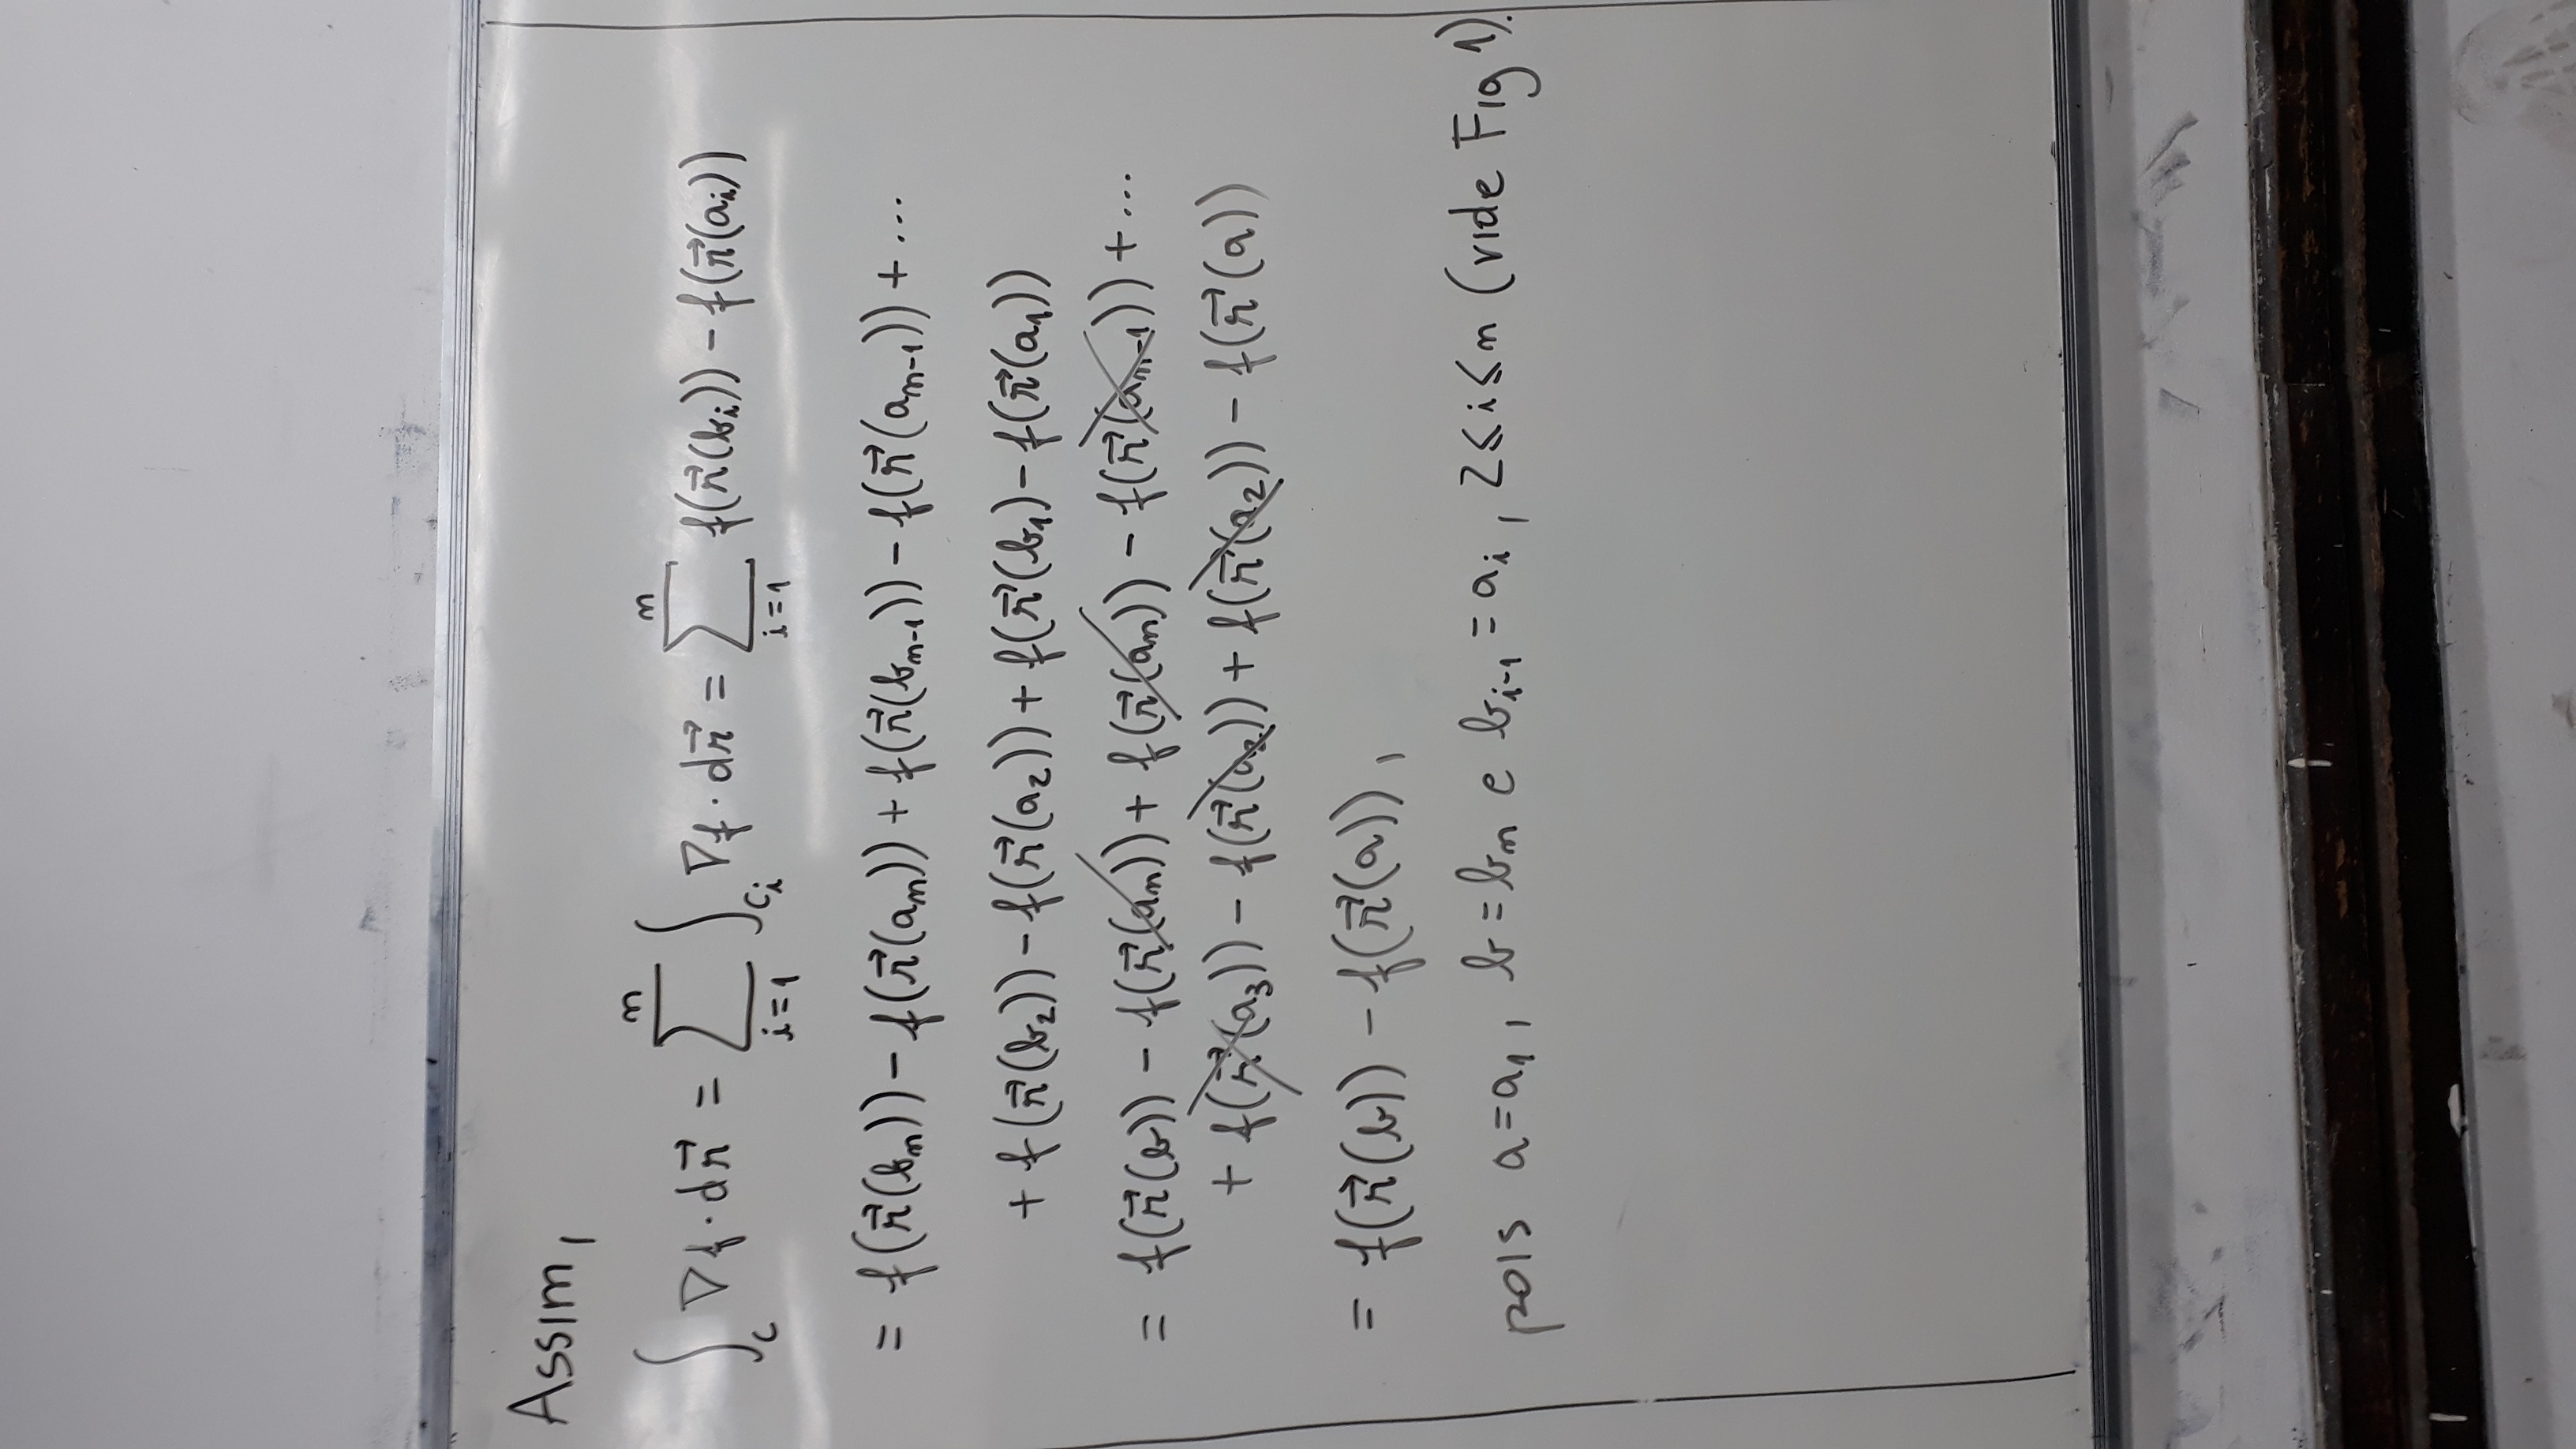 Assim,
∫_C ∇f · dr⃗ = ∑_{i=1}^{n} ∫_{C_i} ∇f · dr⃗ = ∑_{i=1}^{n} f(r⃗(b_i)) − f(r⃗(a_i))
= f(r⃗(b_n)) − f(r⃗(a_n)) + f(r⃗(b_{n-1})) − f(r⃗(a_{n-1})) + ...
+ f(r⃗(b_2)) − f(r⃗(a_2)) + f(r⃗(b_1) − f(r⃗(a_1))
= f(r⃗(b)) − f(r⃗(a_n)) + f(r⃗(a_n)) − f(r⃗(a_{n-1})) + ...
+ f(r⃗(a_3)) − f(r⃗(a_2)) + f(r⃗(a_2)) − f(r⃗(a))
= f(r⃗(b)) − f(r⃗(a)),
pois a = a_1, b = b_n e b_{i-1} = a_i, 2 ≤ i ≤ n (vide Fig 1).